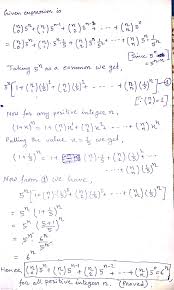 Given expression is
(n 0) 5^n + (n 1) 5^(n-1) + (n 2) 5^(n-2) + ... + (n n) 5^0
= (n 0) 5^n + (n 1) 5^n · 1/5 + (n 2) 5^n · 1/5² + ... + (n n) 5^n · 1/5^n
[Since 5^0 = 5^(n-n)]
Taking 5^n as a common we get,
5^n [1 + (n 1)(1/5)^1 + (n 2)(1/5)^2 + ... + (n n)(1/5)^n] —①
[∵ (n 0) = 1]
Now for any positive integer n,
(1+x)^n = 1 + (n 1) x^1 + (n 2) x^2 + ... + (n n) x^n
Putting the value x = 1/5 we get,
(1+1/5)^n = 1 + (n 1)(1/5)^1 + (n 2)(1/5)^2 + ... + (n n)(1/5)^n
Now from ① we have,
5^n [1 + (n 1)(1/5)^1 + (n 2)(1/5)^2 + ... + (n n)(1/5)^n]
= 5^n (1 + 1/5)^n
= 5^n ((5+1)/5)^n
= 5^n · 6^n/5^n
= 6^n
Hence, (n 0) 5^n + (n 1) 5^(n-1) + (n 2) 5^(n-2) + ... + (n n) 5^0 = 6^n,
for all positive integer n. (Proved)